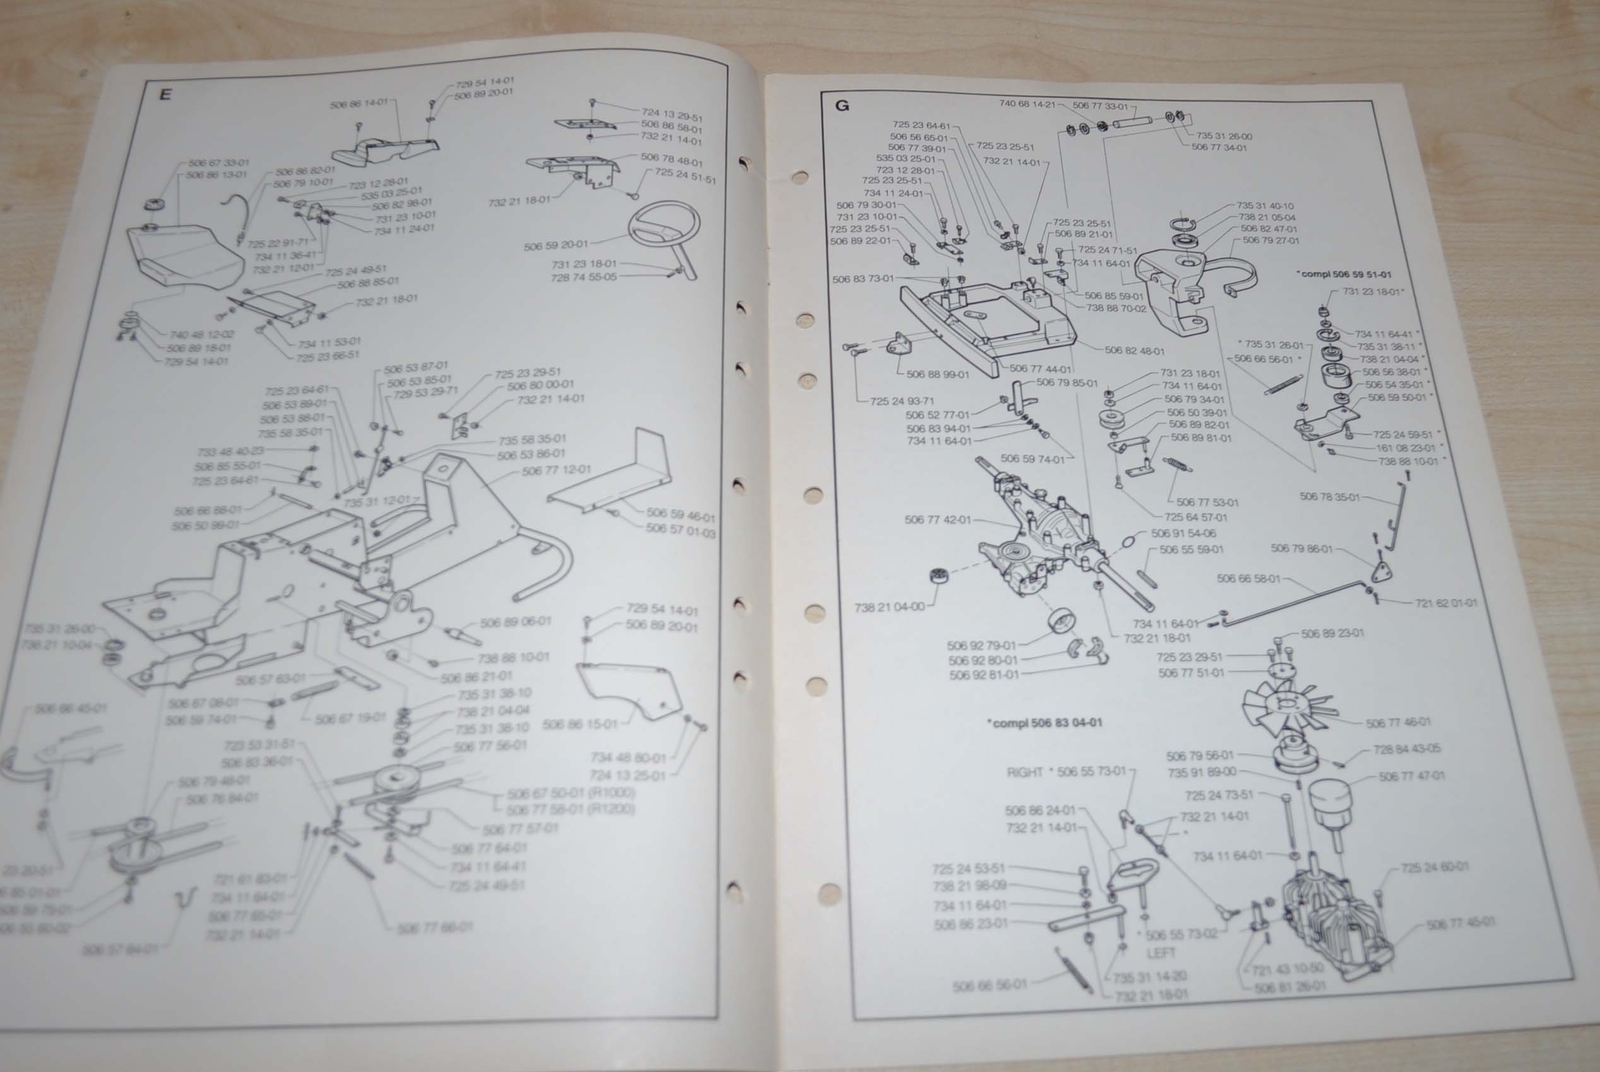 E
729 54 14-01
506 89 20-01
506 86 14-01
724 13 29-51
506 86 58-01
732 21 14-01
506 78 48-01
725 24 51-51
732 21 18-01
506 67 33-01
506 86 13-01
506 86 82-01
506 79 10-01
723 12 28-01
535 03 25-01
506 82 98-01
731 23 10-01
734 11 24-01
725 22 91-71
734 11 36-41
732 21 12-01
506 59 20-01
731 23 18-01
728 74 55-05
725 24 49-51
506 88 85-01
732 21 18-01
734 11 53-01
725 23 66-51
740 48 12-02
506 89 18-01
729 54 14-01
506 53 87-01
506 53 85-01
729 53 29-71
725 23 64-61
506 53 89-01
506 53 88-01
735 58 35-01
725 23 29-51
506 80 00-01
732 21 14-01
735 58 35-01
506 53 86-01
506 77 12-01
733 48 40-23
506 85 55-01
725 23 64-61
506 66 88-01
506 50 99-01
735 31 12-01
506 59 46-01
506 57 01-03
729 54 14-01
506 89 20-01
506 89 06-01
738 88 10-01
506 86 21-01
735 31 26-00
738 21 10-04
506 57 63-01
506 67 08-01
506 59 74-01
506 67 19-01
735 31 38-10
738 21 04-04
735 31 38-10
506 77 56-01
506 86 15-01
734 48 80-01
724 13 25-01
506 66 45-01
723 53 31-51
506 83 36-01
506 79 48-01
506 76 84-01
506 67 50-01 (R1000)
506 77 58-01 (R1200)
506 77 57-01
506 77 64-01
734 11 64-41
725 24 49-51
721 61 83-01
734 11 64-01
506 77 65-01
732 21 14-01
506 77 66-01
506 57 64-01
G
740 68 14-21
506 77 33-01
735 31 26-00
506 77 34-01
725 23 64-61
506 56 65-01
506 77 39-01
535 03 25-01
723 12 28-01
725 23 25-51
734 11 24-01
506 79 30-01
731 23 10-01
725 23 25-51
506 89 22-01
725 23 25-51
732 21 14-01
725 23 25-51
506 89 21-01
725 24 71-51
734 11 64-01
506 83 73-01
506 85 59-01
738 88 70-02
735 31 40-10
738 21 05-04
506 82 47-01
506 79 27-01
*compl 506 59 51-01
731 23 18-01*
734 11 64-41 *
735 31 38-11 *
738 21 04-04 *
506 56 38-01 *
506 54 35-01 *
506 59 50-01 *
* 735 31 26-01
506 66 56-01 *
725 24 59-51 *
161 08 23-01 *
738 88 10-01 *
506 82 48-01
506 88 99-01
506 77 44-01
506 79 85-01
725 24 93-71
506 52 77-01
506 83 94-01
734 11 64-01
506 59 74-01
731 23 18-01
734 11 64-01
506 79 34-01
506 50 39-01
506 89 82-01
506 89 81-01
506 77 53-01
725 64 57-01
506 77 42-01
506 91 54-06
506 55 59-01
738 21 04-00
506 78 35-01
506 79 86-01
506 66 58-01
721 62 01-01
734 11 64-01
732 21 18-01
506 92 79-01
506 92 80-01
506 92 81-01
506 89 23-01
725 23 29-51
506 77 51-01
506 77 46-01
506 79 56-01
735 91 89-00
728 84 43-05
506 77 47-01
*compl 506 83 04-01
RIGHT * 506 55 73-01
506 86 24-01
732 21 14-01
725 24 73-51
732 21 14-01
*
734 11 64-01
725 24 60-01
725 24 53-51
738 21 98-09
734 11 64-01
506 86 23-01
* 506 55 73-02
LEFT
506 77 45-01
506 66 56-01
735 31 14-20
732 21 18-01
721 43 10-50
506 81 26-01